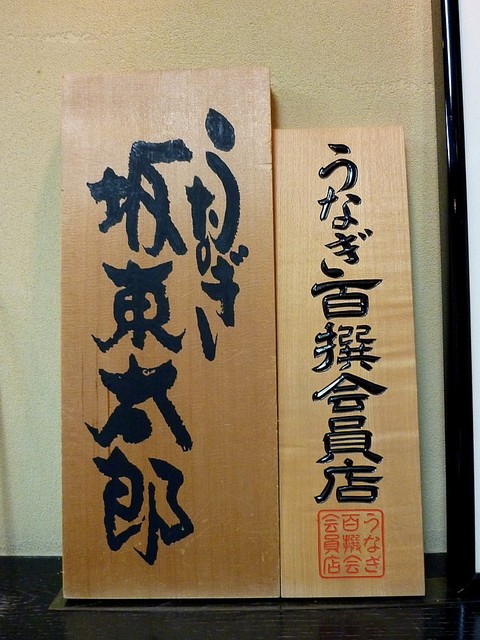 うなぎ
坂東太郎
うなぎ百撰会員店
うなぎ
百撰会
会員店